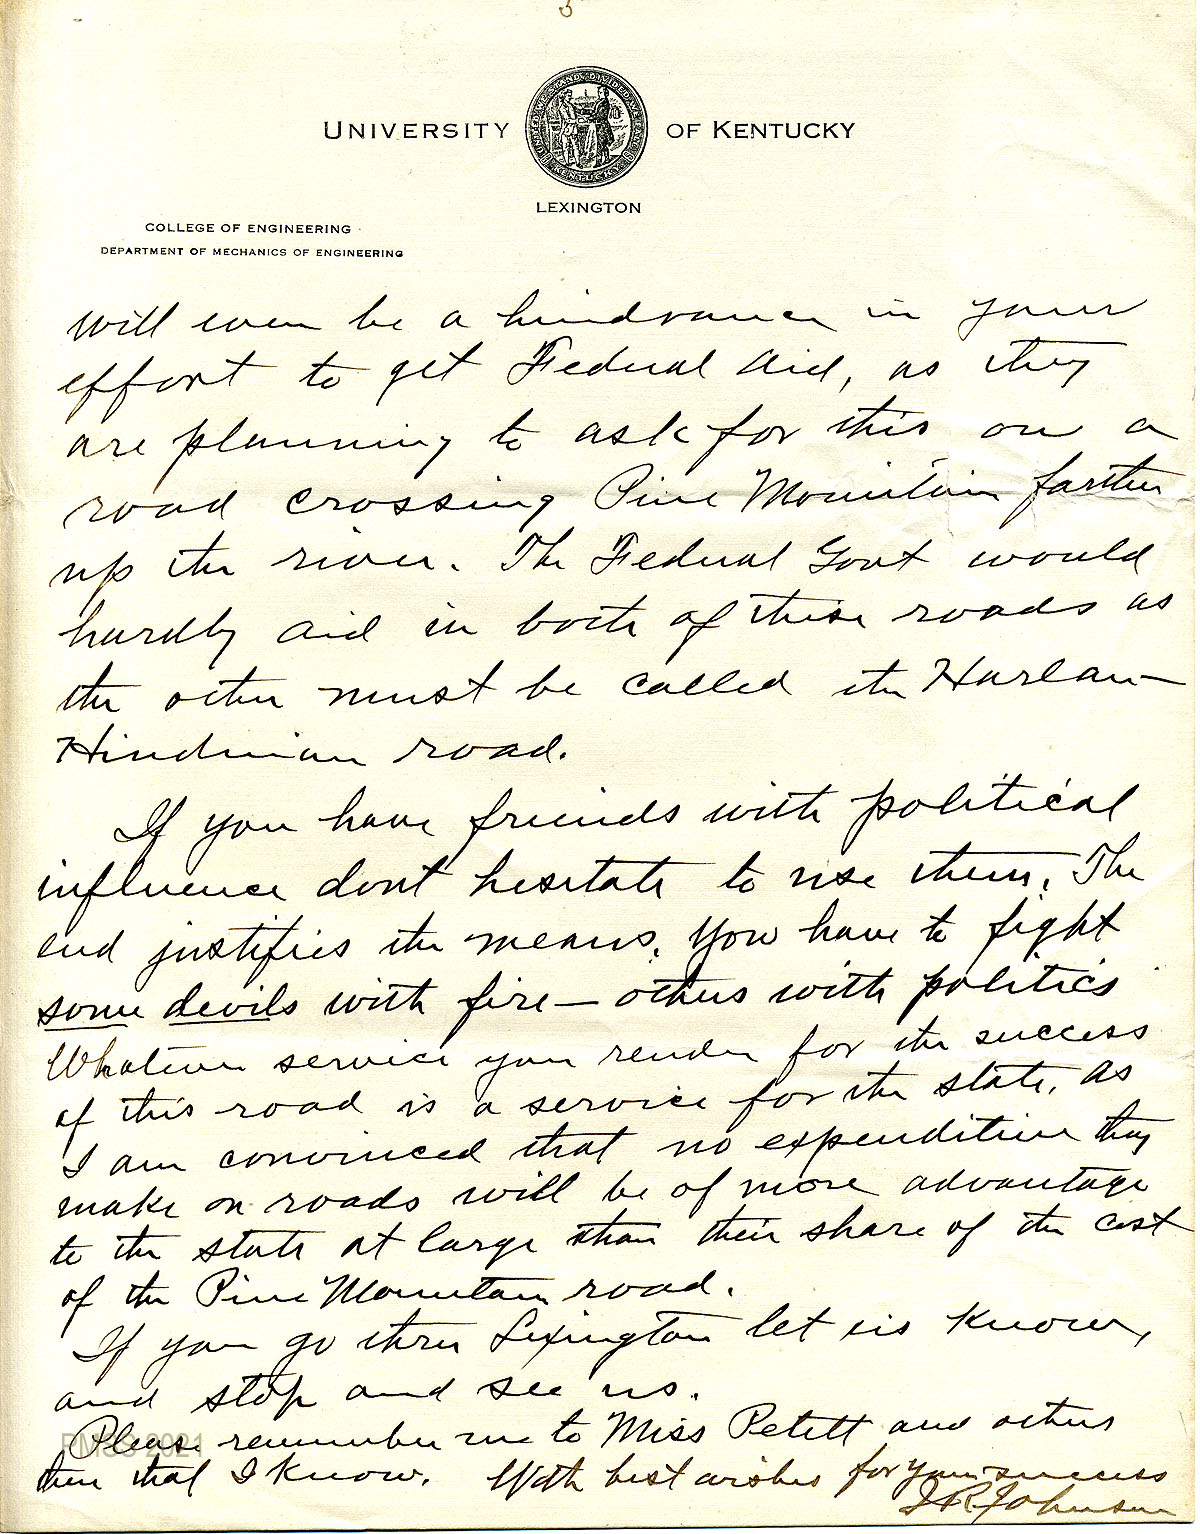 5
UNIVERSITY OF KENTUCKY
LEXINGTON
COLLEGE OF ENGINEERING
DEPARTMENT OF MECHANICS OF ENGINEERING
will even be a hindrance in your
effort to get Federal Aid, as they
are planning to ask for this on a
road crossing Pine Mountain farther
up the river. The Federal Govt would
hardly aid in both of these roads as
the other must be called the Harlan-
Hindman road.
If you have friends with political
influence dont hesitate to use them. The
end justifies the means. You have to fight
some devils with fire — others with politics
Whatever service you render for the success
of this road is a service for the state. As
I am convinced that no expenditure they
make on roads will be of more advantage
to the state at large than their share of the cost
of the Pine Mountain road.
If you go thru Lexington let us know,
and stop and see us.
Please remember me to Miss Petett and others
there that I know. With best wishes for your success
J R Johnson
PMSS 2021